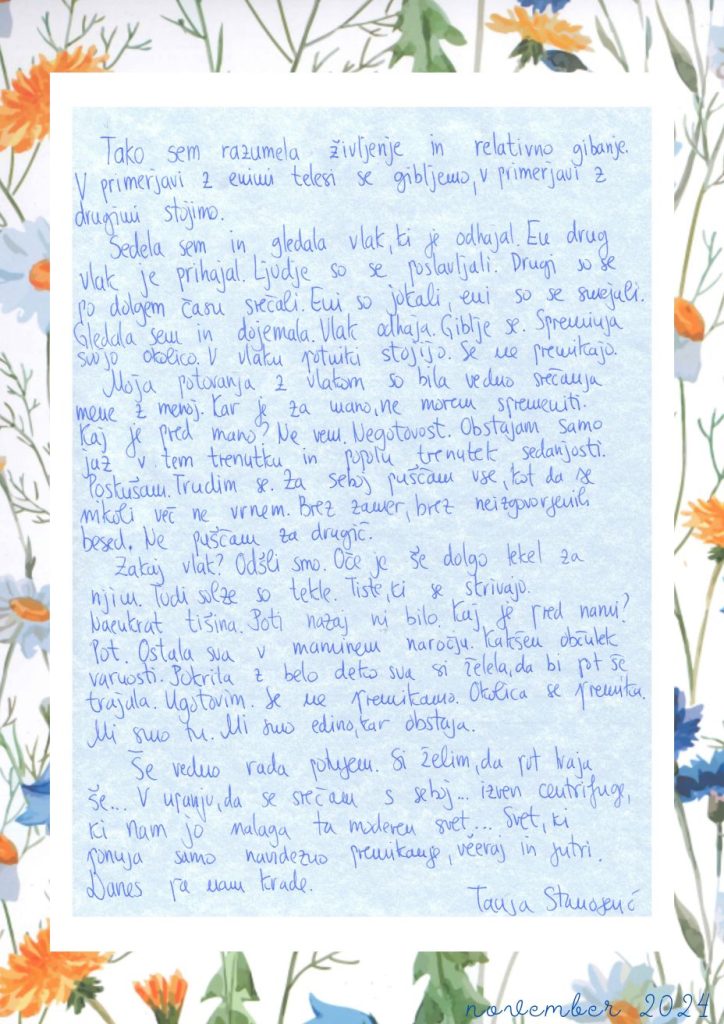 Tako sem razumela življenje in relativno gibanje.
V primerjavi z enimi telesi se gibljemo, v primerjavi z
drugimi stojimo.
Sedela sem in gledala vlak, ki je odhajal. En drug
vlak je prihajal. Ljudje so se poslavljali. Drugi so se
po dolgem času srečali. Eni so jokali, eni so se smejali.
Gledala sem in dojemala. Vlak odhaja. Giblje se. Spreminja
svojo okolico. V vlaku potniki stojijo. Se ne premikajo.
Moja potovanja z vlakom so bila vedno srečanja
mene z menoj. Kar je za mano, ne morem spremeniti.
Kaj je pred mano? Ne vem. Negotovost. Obstajam samo
jaz v tem trenutku in popoln trenutek sedanjosti.
Poskušam. Trudim se. Za seboj puščam vse, kot da se
nikoli več ne vrnem. Brez zamer, brez neizgovorjenih
besed. Ne puščam za drugič.
Zakaj vlak? Odšli smo. Oče je še dolgo tekel za
njim. Tudi solze so tekle. Tiste, ki se skrivajo.
Naenkrat tišina. Poti nazaj ni bilo. Kaj je pred nami?
Pot. Ostala sva v maminem naročju. Kakšen občutek
varnosti. Pokrila z belo deko sva si želela, da bi pot še
trajala. Ugotovim. Se ne premikamo. Okolica se premika.
Mi smo tu. Mi smo edino, kar obstaja.
Še vedno rada potujem. Si želim, da pot traja
še... V upanju, da se srečam s seboj... izven centrifuge,
ki nam jo nalaga ta moderen svet... Svet, ki
ponuja samo navidezno premikanje, včeraj in jutri.
Danes pa nam krade.
Tanja Stanojević
november 2024